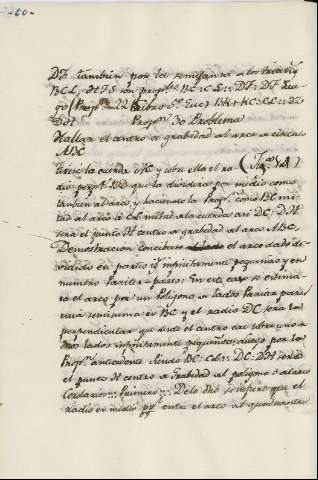 -60-
DF tambien por la semejansa a los triang
BCL, HFS son prop.les BC: CL:: DF: DF Lue-
go (Prop.n 22 Libro 5º Euc)
DH Propos.n 30 Problema
Hallar el centro de grabedad al arco de circulo
ABC
Tirese la cuerda AC y sobre ella el ra- (Fig.
dio perp.r BD que la dividira por medio como
tambien al arco, y haciendo la Prop.n como BC mi-
tad al arco à CL mitad a la cuerda asi DC: DH
será el punto H centro de grabedad al arco ABC,
Demostracion concibase el arco dado di-
vidido en partes infinitamente pequeñas y en
numero pariter paros: En este caso se estima-
ra el arco por un Poligono de lados Pariter pares
cuia semisuma es BC y el radio DC será la
perpendicular que sale del centro sobre uno de
los lados infinitamente pequeños: luego por la
Prop.n antecedente siendo BC: CL:: DC: DH será
el punto H centro de Grabedad al poligono ó al arco
Corolario: Primero: De lo dho se infiere que el
radio es medio pp.l entre el arco del quadrante